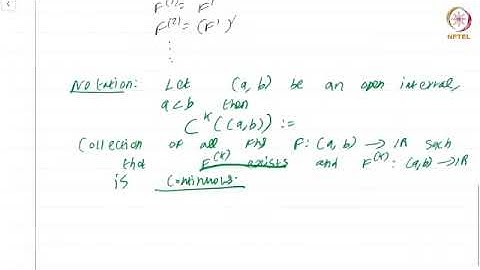 F⁽¹⁾ = F'
F⁽²⁾ = (F')'
⋮
NPTEL
Notation: Let (a, b) be an open interval,
a<b then
Cᴷ((a,b)) :=
Collection of all fns F: (a,b) → IR such
that F⁽ᴷ⁾ exists and F⁽ᴷ⁾: (a,b) → IR
is continuous.